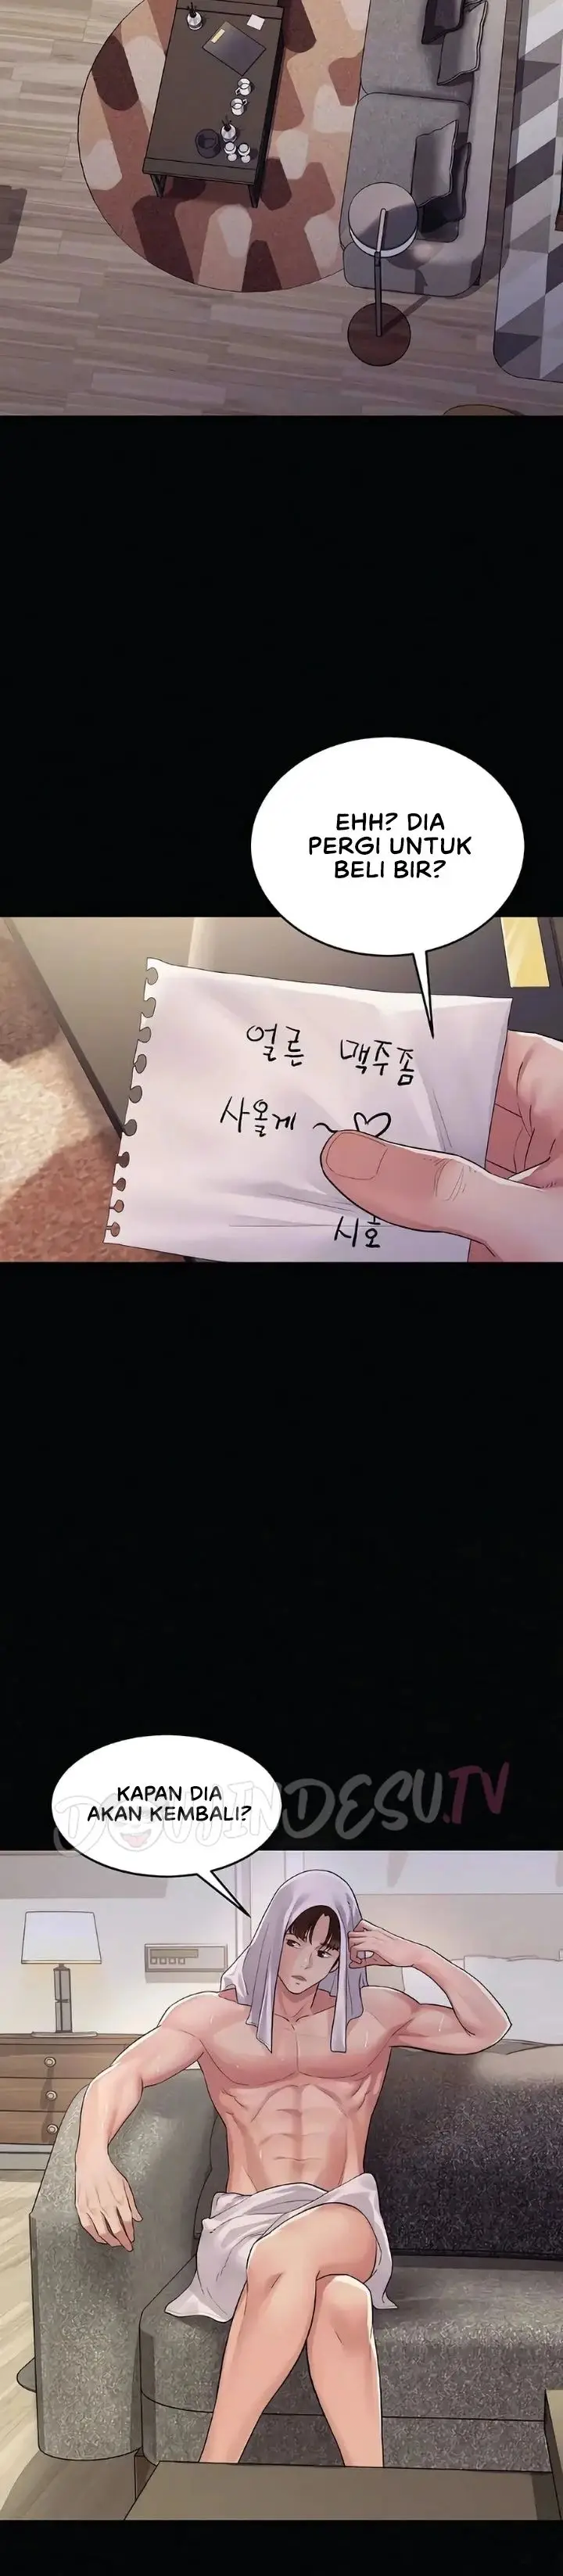 EHH? DIA
PERGI UNTUK
BELI BIR?
얼른 맥주좀
사올게 ~♡
시호
KAPAN DIA
AKAN KEMBALI?
DOUJINDESU.TV